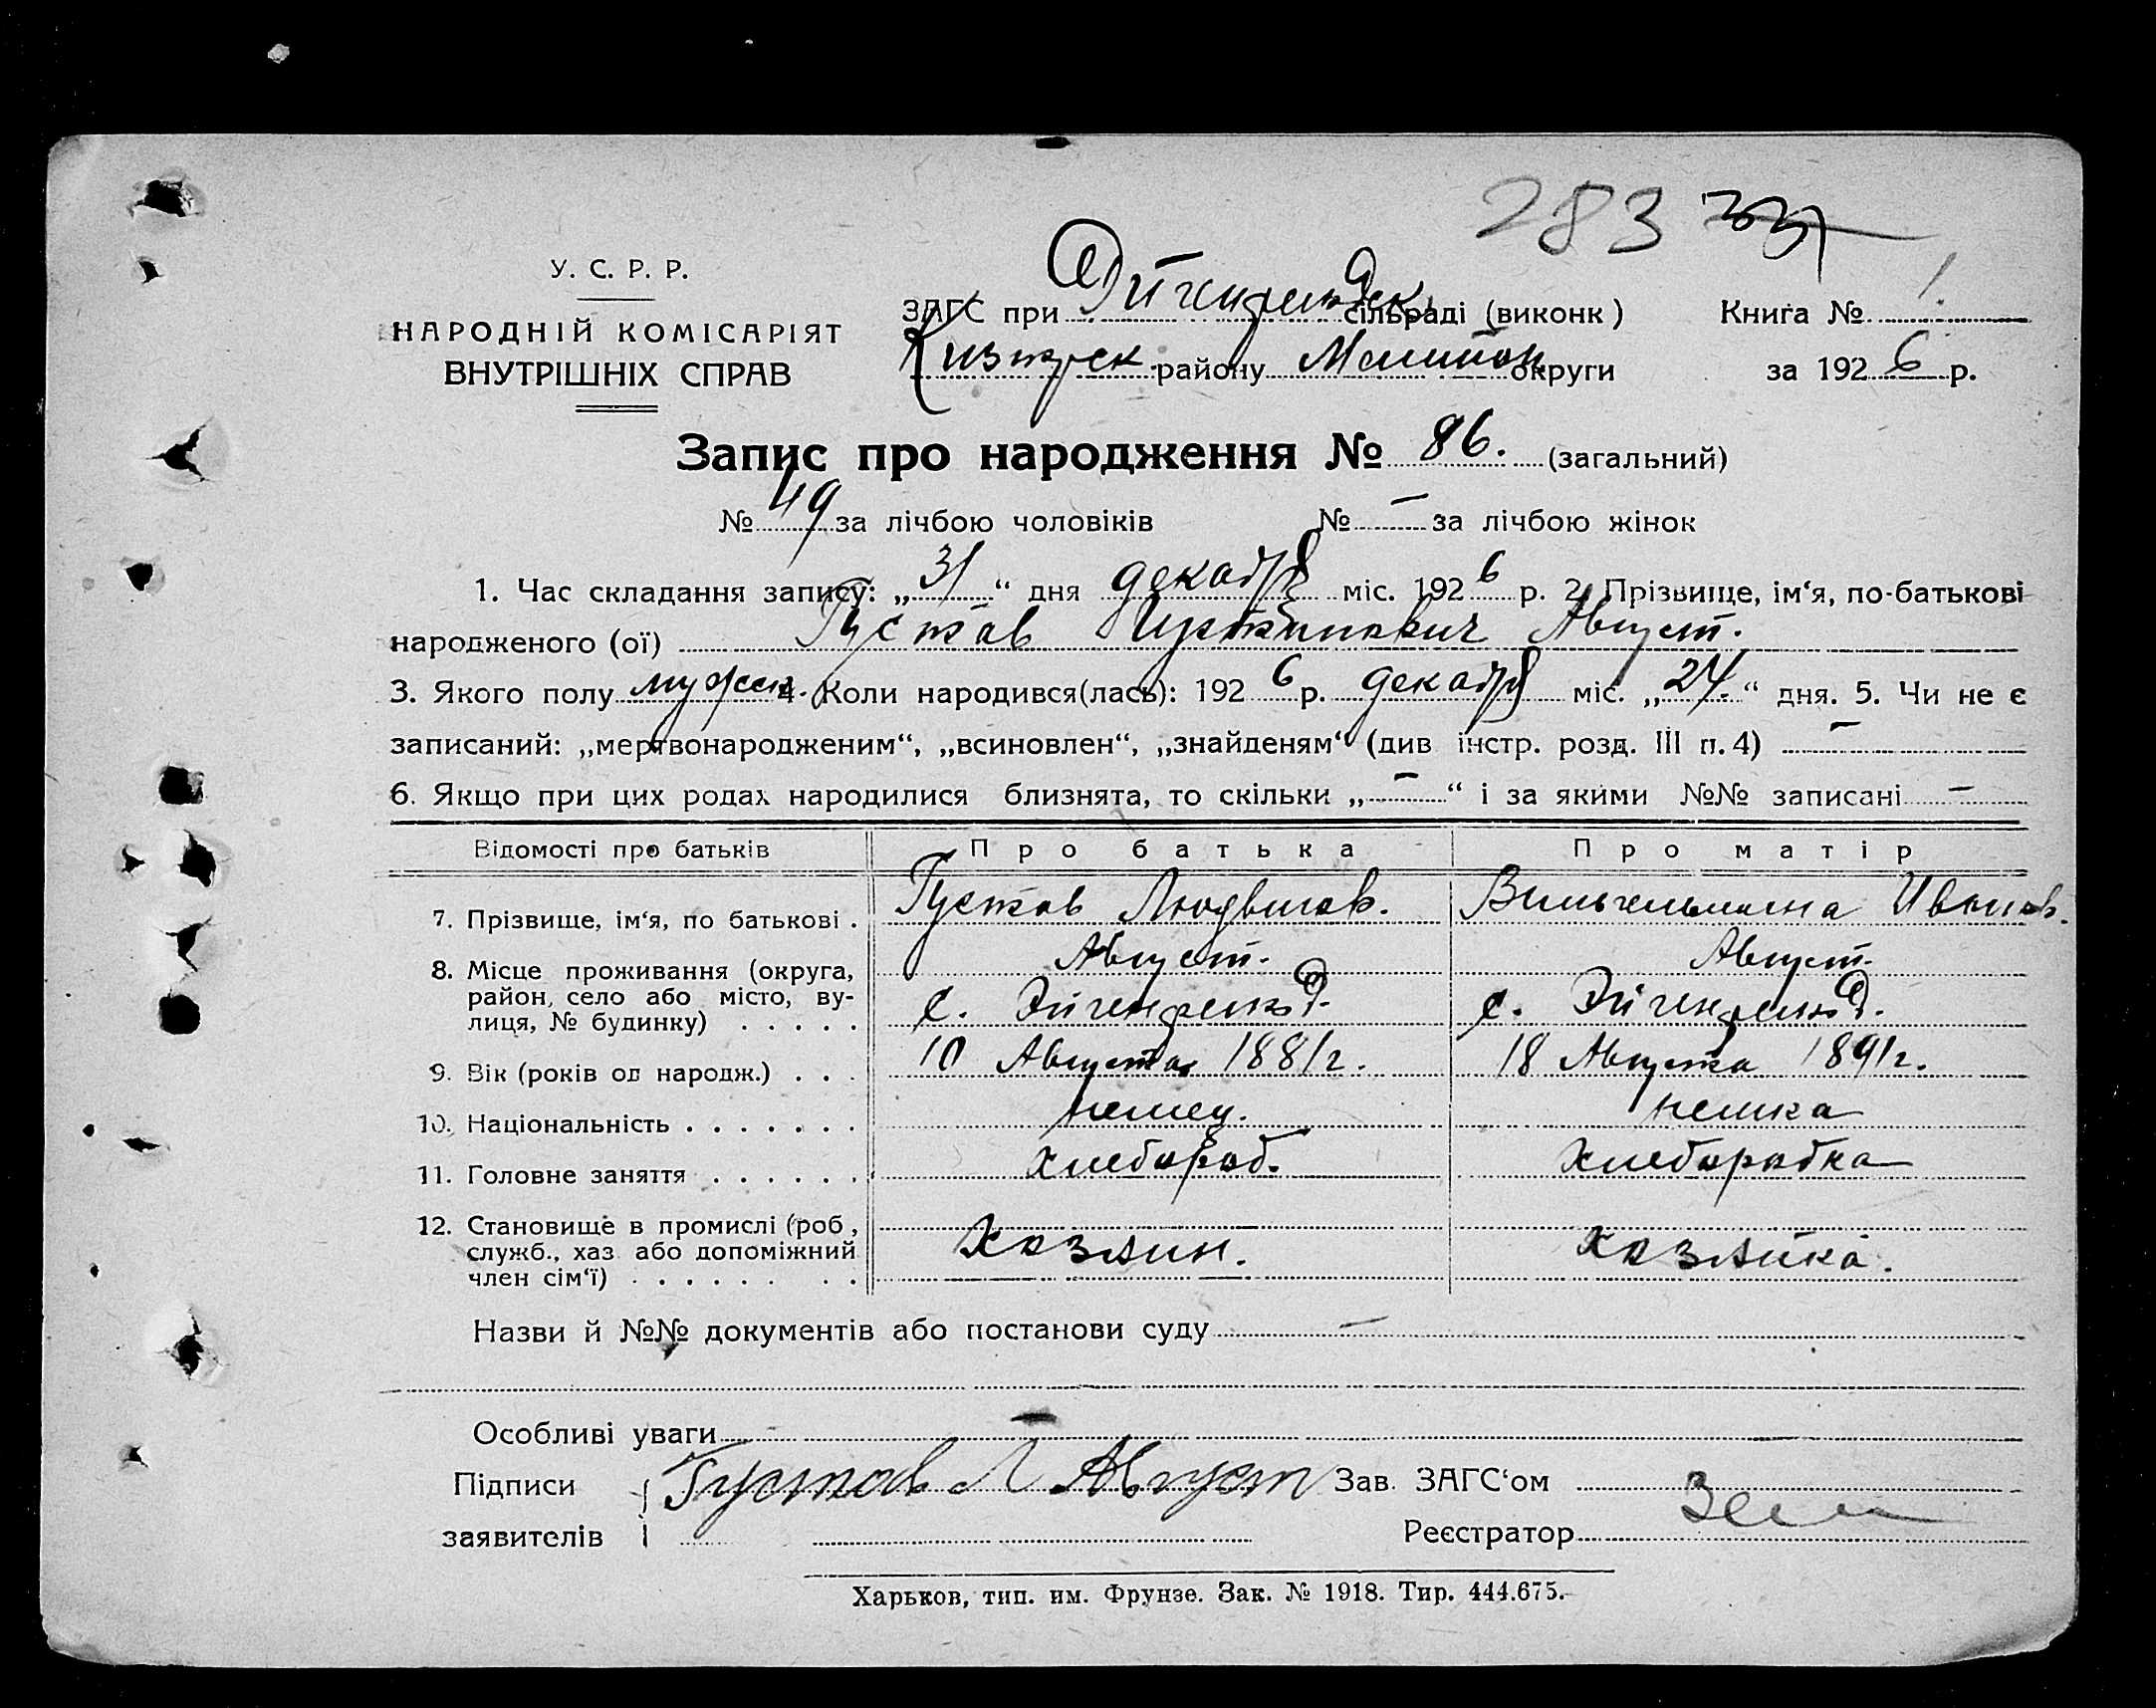 283
У. С. Р. Р.
НАРОДНІЙ КОМІСАРІЯТ
ВНУТРІШНІХ СПРАВ
ЗАГС при Эйгенфельдск. сільраді (виконк) Книга № 1.
району Мелитоп. округи за 1926 р.
Запис про народження № 86. (загальний)
№ 49 за лічбою чоловіків № — за лічбою жінок
1. Час складання запису: „31“ дня декабря міс. 1926 р. 2. Прізвище, ім‘я, по-батькові
народженого (ої) Густав Август.
3. Якого полу мужск. 4. Коли народився(лась): 1926 р. декабря міс. „24.“ дня. 5. Чи не є
записаний: „мертвонародженим“, „всиновлен“, „знайденям“ (див інстр. розд. III п. 4) —
6. Якщо при цих родах народилися близнята, то скільки „—“ і за якими №№ записані —
Відомості про батьків Про батька Про матір
7. Прізвище, ім‘я, по батькові . Густав Людвигов. Вильгельмина Иванов.
Август. Август.
8. Місце проживання (округа, район, село або місто, вулиця, № будинку) . . . . . с. Эйгенфельд. с. Эйгенфельд.
9. Вік (років од народж.) . . . 10 Августа 1881 г. 18 Августа 1891 г.
10. Національність . . . . . . . немец. немка
11. Головне заняття . . . . . . хлебороб. хлеборобка
12. Становище в промислі (роб, служб., хаз або допоміжний член сім‘ї) . . . . . . . . Хозяин. хозяйка.
Назви й №№ документів або постанови суду —
Особливі уваги —
Підписи заявителів Густав Л Август Зав. ЗАГС‘ом
Реєстратор
Харьков, тип. им. Фрунзе. Зак. № 1918. Тир. 444.675.